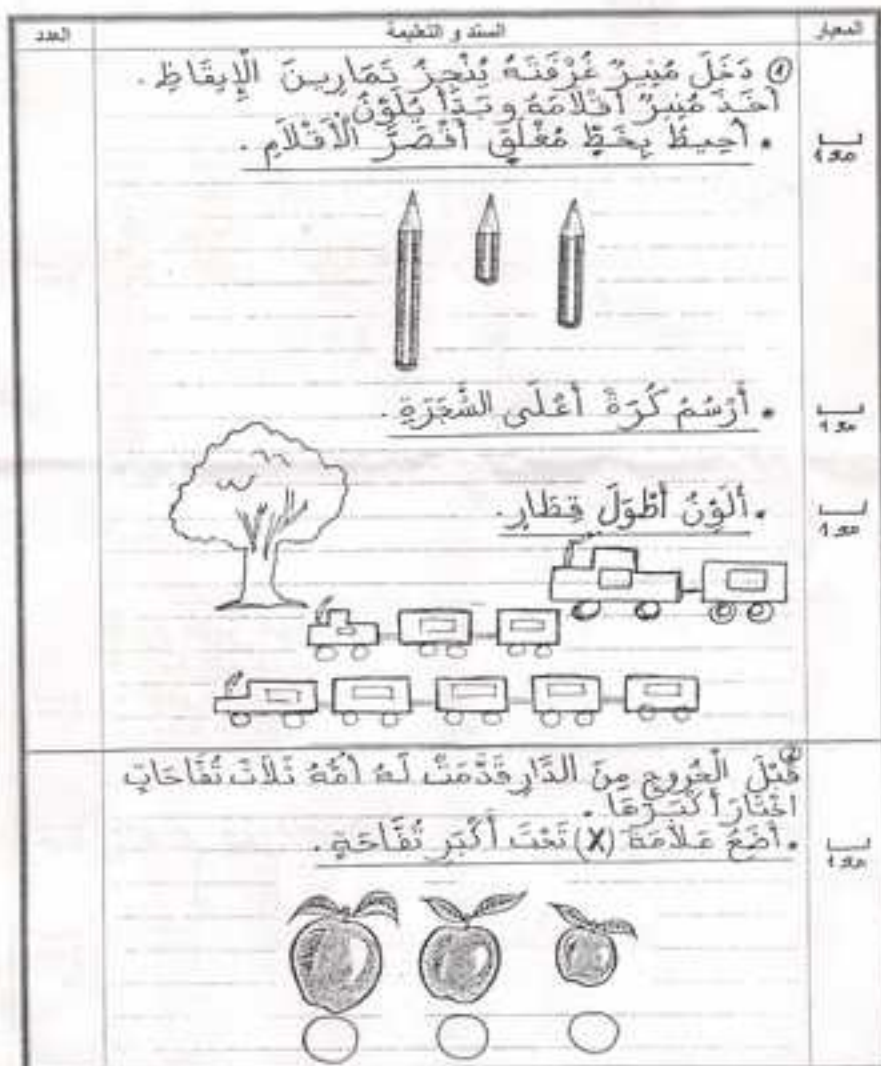 المعيار السند و التعليمة العدد
① دَخَلَ مُنِيرٌ غُرْفَتَهُ يُنْجِزُ تَمَارِينَ الْإِيقَاظِ .
أَخَذَ مُنِيرٌ أَقْلَامَهُ وبَدَأَ يُلَوِّنُ
• أُحِيطُ بِخَطٍّ مُغْلَقٍ أَقْصَرَ الْأَقْلَامِ .
مع1
• أَرْسُمُ كُرَةً أَعْلَى الشَّجَرَةِ .
مع1
• أُلَوِّنُ أَطْوَلَ قِطَارٍ.
مع1
② قَبْلَ الْخُرُوجِ مِنَ الدَّارِ قَدَّمَتْ لَهُ أُمُّهُ ثَلَاثَ تُفَّاحَاتٍ
اخْتَارَ أَكْبَرَهَا .
• أَضَعُ عَلَامَةَ (X) تَحْتَ أَكْبَرِ تُفَّاحَةٍ .
مع1